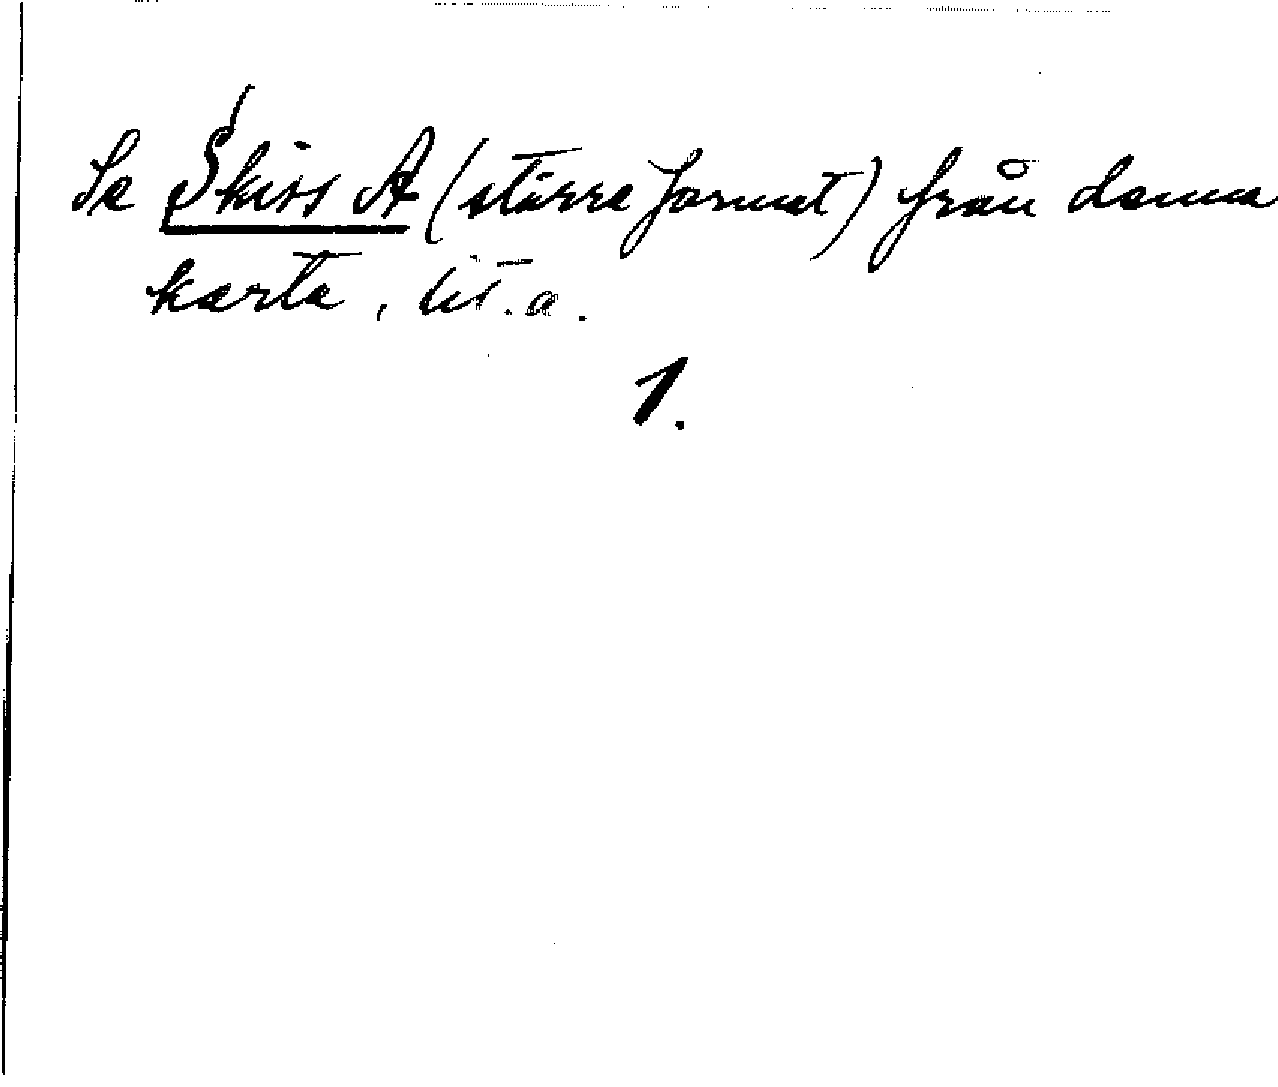 Se Skiss A (större format) från denna
karta, lit. a.
1.